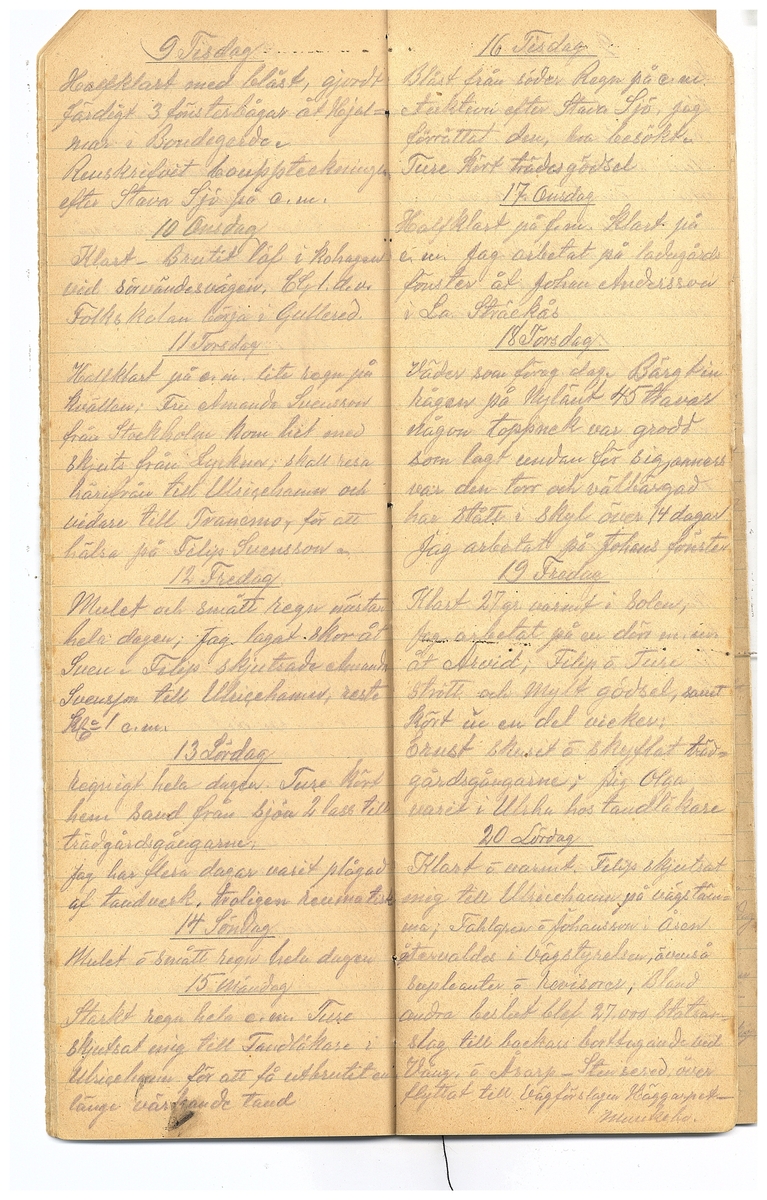 9 Tisdag
Halfklart med blåst, gjordt
färdigt 3 fönsterbågar åt Hjal=
mar i Bondegerde.
Renskrifvit bouppteckningen
efter Stava Sjö på e.m.
10 Onsdag
Klart - Brutit löf i kohagen
vid sörvändesvägen. 1. d.v.
Folkskolan börja i Gullered.
11 Torsdag
Halfklart på e.m. lite regn på
kvällen; Fru Amanda Svensson
från Stockholm kom hit med
skjuts från skall resa
härifrån till Ulricehamn och
vidare till Tranemo, för att
hälsa på Filip Svensson.
12 Fredag
Mulet och smått regn nästan
hela dagen; Jag lagat skor åt
Sven - Filip skjutsade Amanda
Svensson till Ulricehamn, reste
Kl 1 e.m.
13 Lördag
regnigt hela dagen. Ture kört
hem sand från sjön 2 lass till
trädgårdsgångarne.
Jag har flera dagar varit plågad
af tandverk, troligen reumatisk
14 Söndag
Mulet å smått regn hela dagen
15 Måndag
Starkt regn hela e.m. Ture
skjutsat mig till Tandläkare i
Ulricehamn för att få utbrutit en
länge värkande tand
16 Tisdag
Blåst från söder Regn på e.m.
Auktion efter Stava Sjö, jag
förrättat den, bra besökt.
Ture kört trädesgödsel
17 Onsdag
Halfklart på f.m. Klart på
e.m. Jag arbetat på ladugårds
fönster åt Johan Andersson
i La Sträckås
18 Torsdag
Väder som föreg. dag. Bärgt in
rågen på Nylänt 45 stavar
någon toppnek var grodd
som lagt undan för
var den torr och välbärgad
har stått i skyl över 14 dagar
Jag arbetat på Johans fönster
19 Fredag
Klart 27 gr. varmt i solen,
Jag arbetat på en dörr m.m.
åt Arvid; Filip å Ture
strött och mylt gödsel, samt
kört in en del vicker;
Ernst skurit å skyfflat träd=
gårdsgångarne; pig Olga
varit i Ulrha hos tandläkare
20 Lördag
Klart å varmt. Filip skjutsat
mig till Ulricehamn på vägstäm-
ma; Fahlgren å Johansson i Åsen
återvaldes i vägstyrelsen, ävenså
supleanter å revisorer, Bland
andra beslut blef 27.000 statsan-
slag till backars bortbygande vid
Vång, å Åsarp - över
flyttat till vägförslagen Häggarpet -
Munkebo.